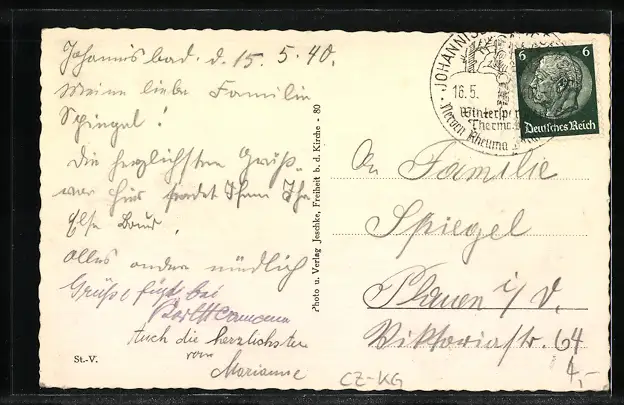 Johannisbad d. 15. 5. 40.
Meine liebe Familie
Spiegel!
Die herzlichsten Grüße
von hier sendet Ihnen Ihre
Else
Alles andere mündlich
Grüße fügt bei
Auch die herzlichsten
von
Marianne
St.-V.
Photo u. Verlag Jeschke, Freiheit b. d. Kirche - 80
JOHANNISBAD
16.5.
Wintersp
Therma
Nerven Rheuma
6 6
Deutsches Reich
An Familie
Spiegel
Plauen i/V.
Viktoriastr. 64
4,-
CZ-KG